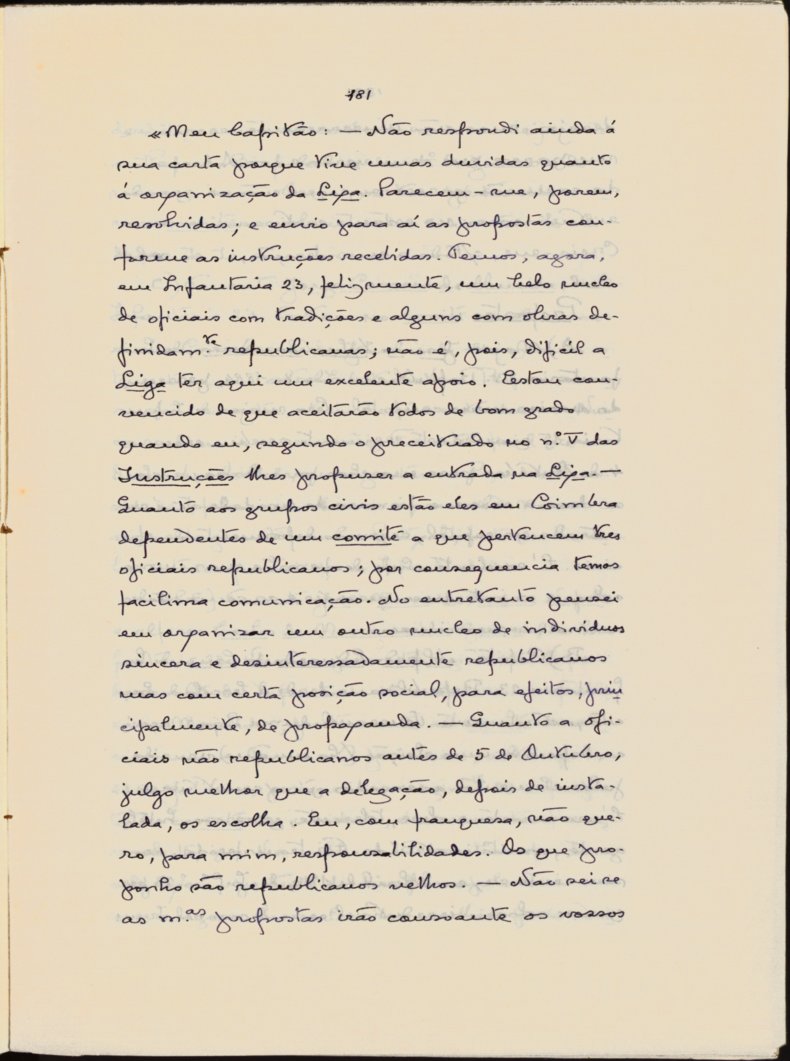 181
«Meu Capitão: — Não respondi ainda á
sua carta porque tive umas duvidas quanto
á organização da Liga. Parecem-me, porem,
resolvidas; e envio para aí as propostas con-
forme as instruções recebidas. Temos, agora,
em Infantaria 23, felizmente, um belo nucleo
de oficiais com tradições e alguns com obras de-
finidam.te republicanas; não é, pois, dificíl a
Liga ter aqui um excelente apoio. Estou con-
vencido de que aceitarão todos de bom grado
quando eu, segundo o preceituado no n.º V das
Instruções lhes propuser a entrada na Liga. —
Quanto aos grupos civis estão eles em Coimbra
dependentes de um comité a que pertencem tres
oficiais republicanos; por consequencia temos
facilima comunicação. No entretanto pensei
em organizar um outro nucleo de individuos
sincera e desinteressadamente republicanos
mas com certa posição social, para efeitos, prin
cipalmente, de propaganda. — Quanto a ofi-
ciais não republicanos antes de 5 de Outubro,
julgo melhor que a delegação, depois de insta-
lada, os escolha. Eu, com franquesa, não que-
ro, para mim, responsabilidades. Os que pro-
ponho são republicanos velhos. — Não sei se
as m.as propostas irão consoante os vossos